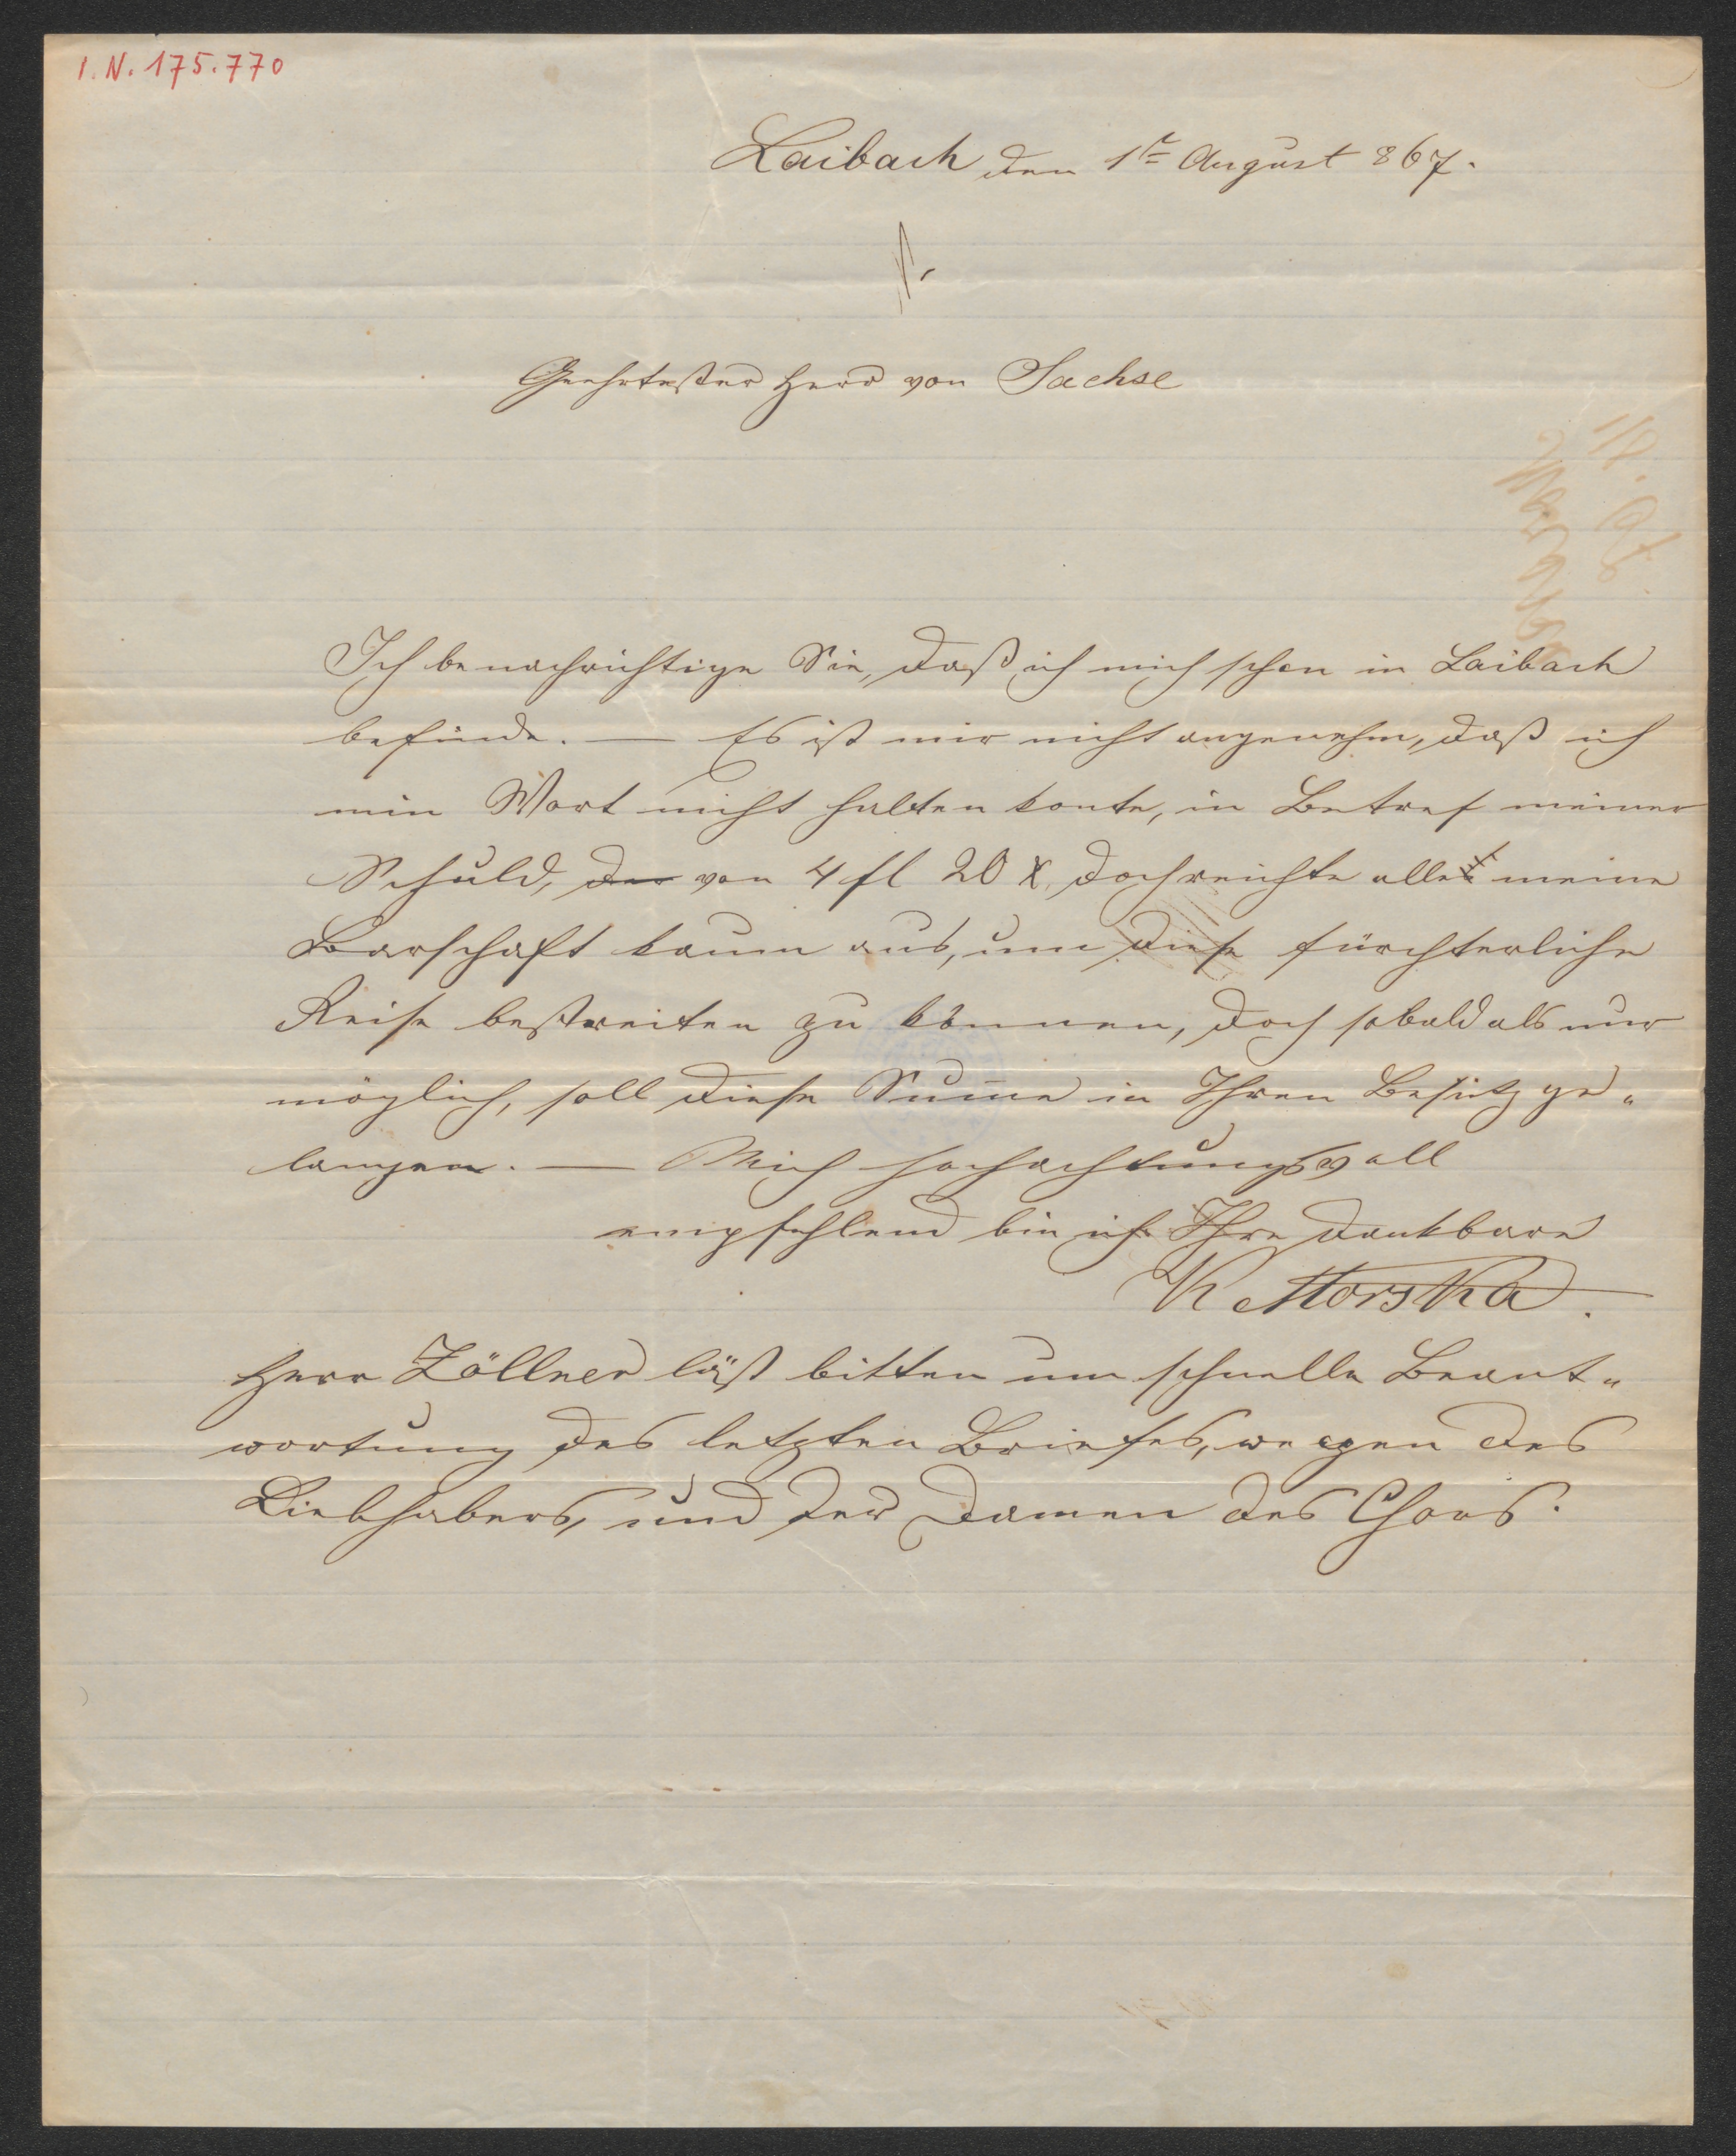 I.N. 175.770
Laibach den 1t August 867.
Geehrtester Herr von Sachse
Ich benachrichtige Sie, daß ich mich schon in Laibach
befinde. — Es ist mir nicht angenehm, daß ich
min Wort nicht halten konte, in Betref meiner
Schuld, der von 4 fl 20 x, doch reichte alle meine
Barschaft kaum aus, um diese fürchterliche
Reise bestreiten zu können, doch sobald als nur
möglich, soll diese Sum̄e in Ihren Besitz ge„
langen. — Mich hochachtungsvoll
empfehlend bin ich Ihre dankbare
K Morska.
Herr Zöllner läßt bitten um schnelle Beant„
wortung des letzten Briefes, wegen des
Liebhabers, und der Damen des Chors.